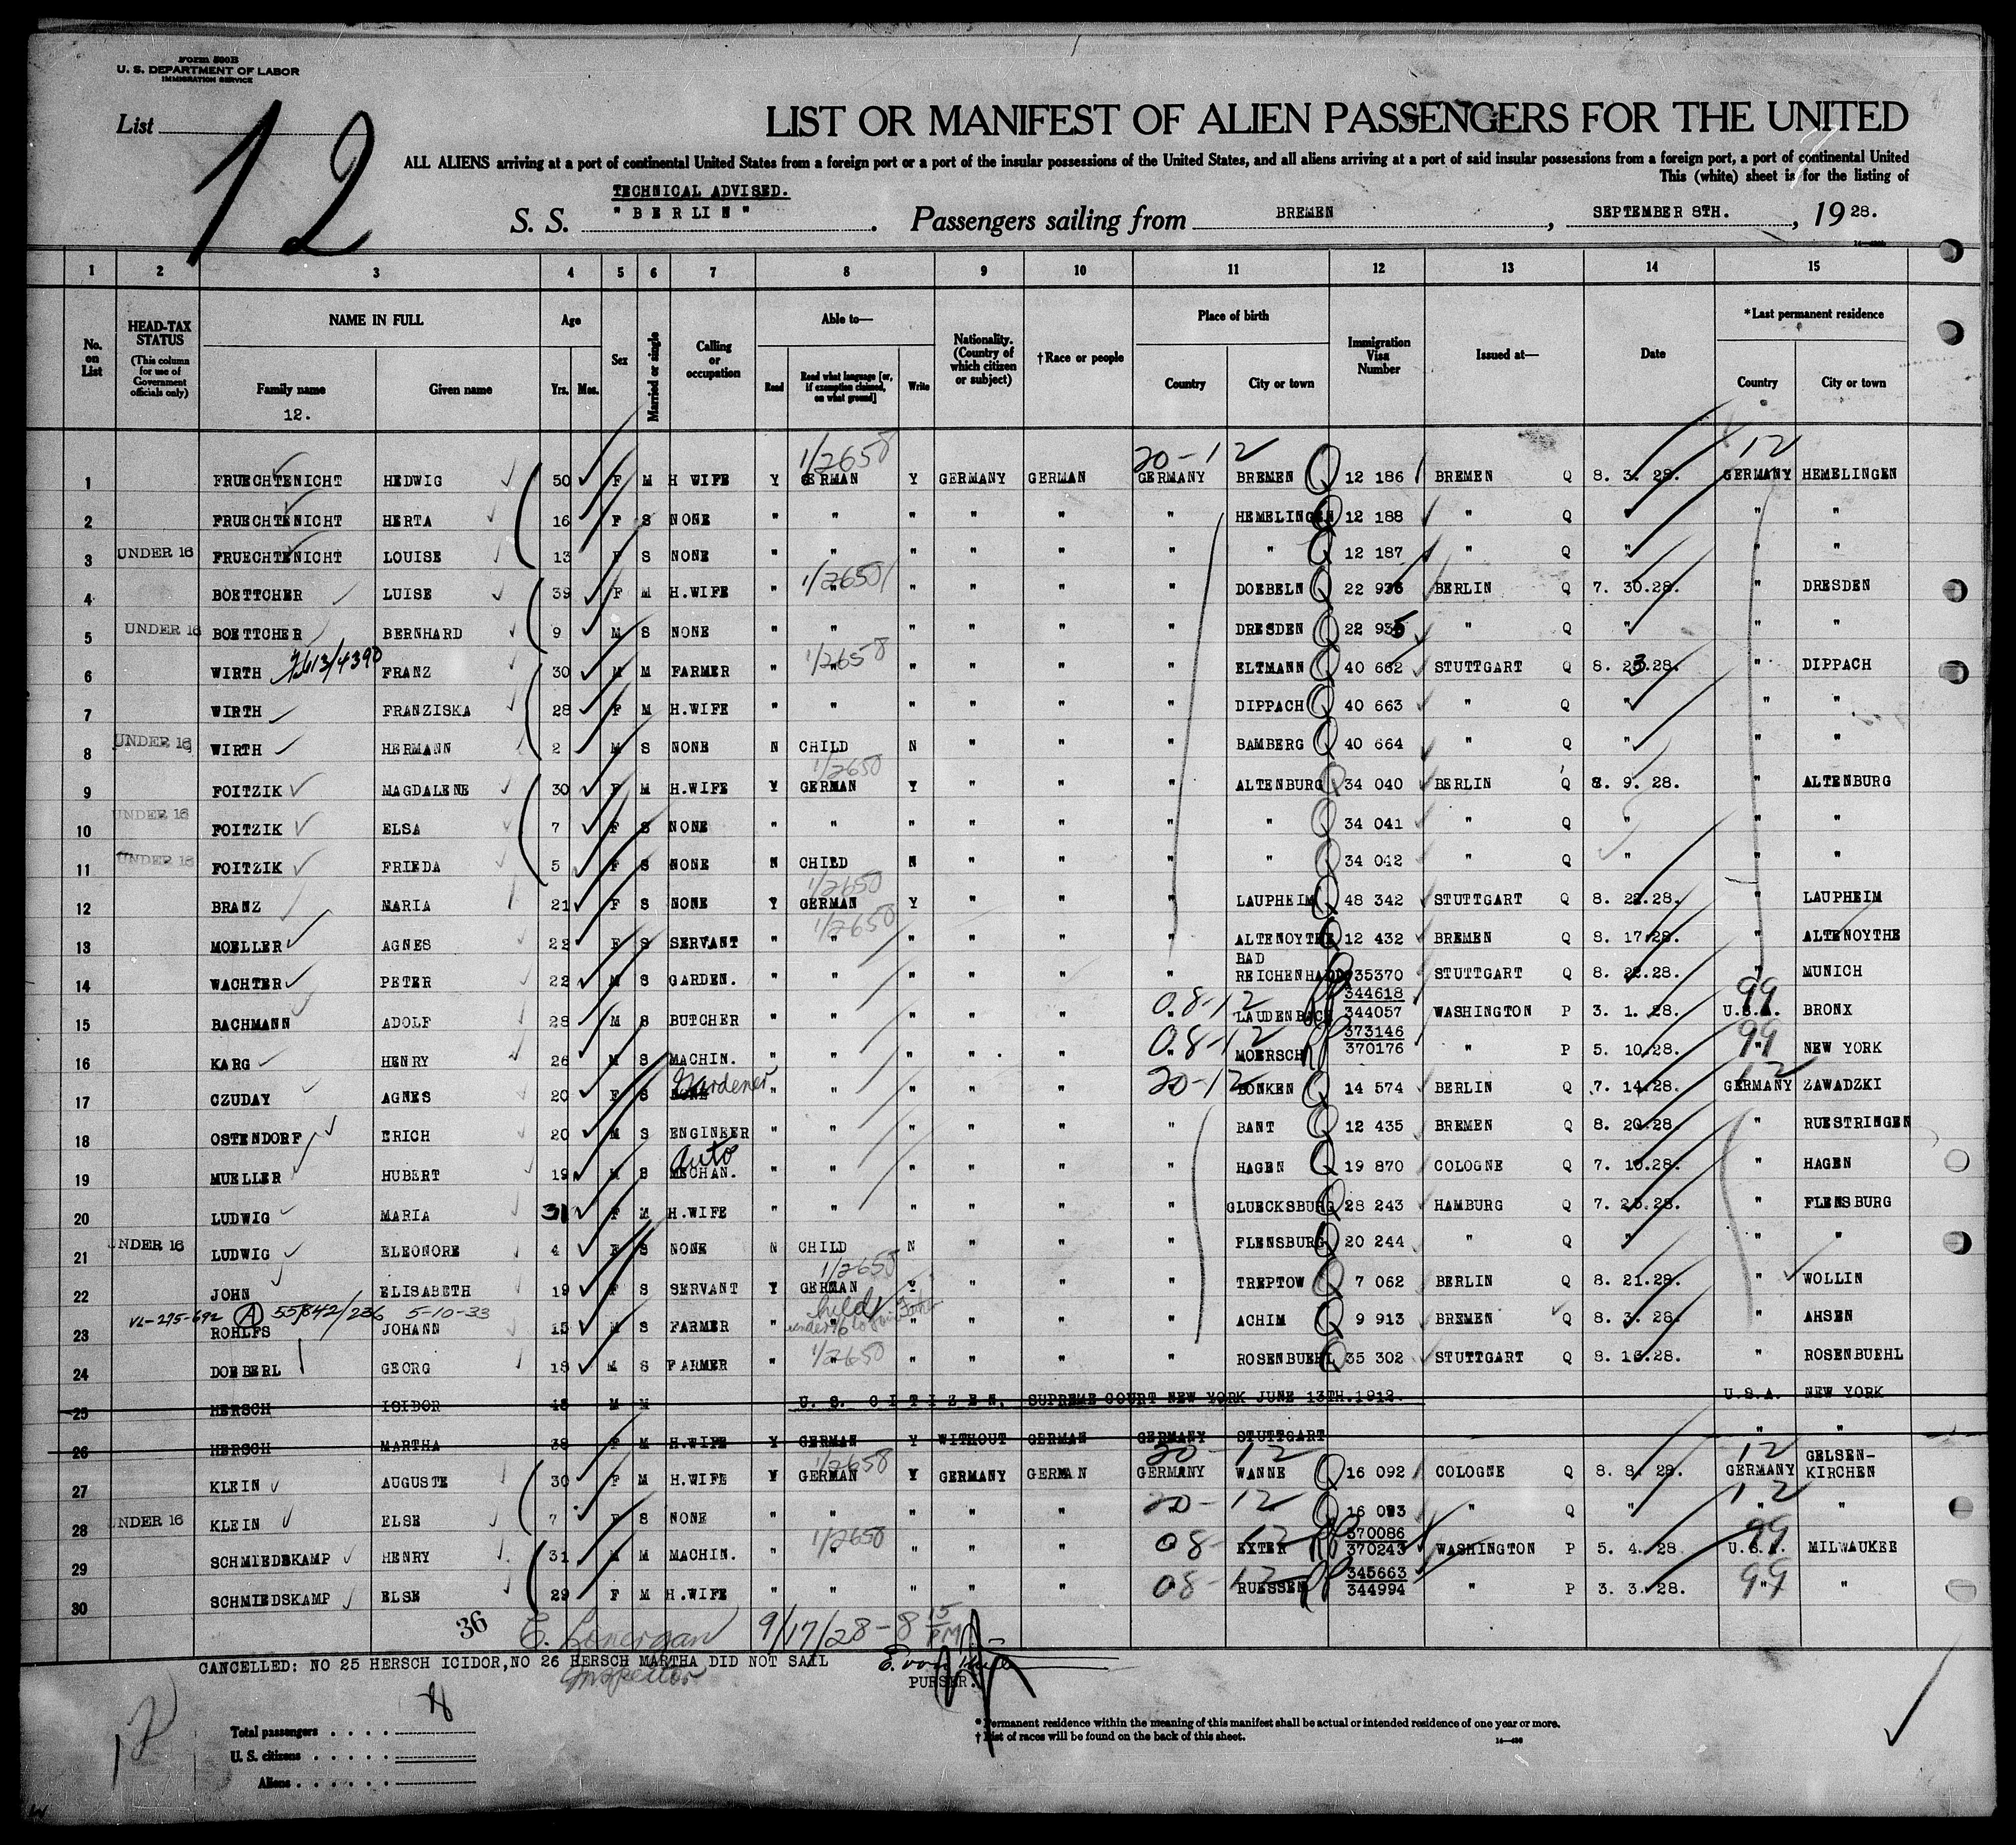 Form 500B
U. S. DEPARTMENT OF LABOR
IMMIGRATION SERVICE
List 12
LIST OR MANIFEST OF ALIEN PASSENGERS FOR THE UNITED
ALL ALIENS arriving at a port of continental United States from a foreign port or a port of the insular possessions of the United States, and all aliens arriving at a port of said insular possessions from a foreign port, a port of continental United
This (white) sheet is for the listing of
TECHNICAL ADVISED.
S. S. "BERLIN". Passengers sailing from BREMEN, SEPTEMBER 8TH., 1928.
1 2 3 4 5 6 7 8 9 10 11 12 13 14 15
No. on List
HEAD-TAX STATUS (This column for use of Government officials only)
NAME IN FULL Family name Given name
12.
Age Yrs. Mos.
Sex
Married or single
Calling or occupation
Able to— Read Read what language [or, if exemption claimed, on what ground] Write
Nationality. (Country of which citizen or subject)
†Race or people
Place of birth Country City or town
Immigration Visa Number
Issued at—
Date
*Last permanent residence Country City or town
1/2658 20-12 12
1 FRUECHTENICHT HEDWIG 50 F M H WIFE Y GERMAN Y GERMANY GERMAN GERMANY BREMEN Q 12 186 BREMEN Q 8. 3. 28. GERMANY HEMELINGEN
2 FRUECHTENICHT HERTA 16 F S NONE " " " " " " HEMELINGEN Q 12 188 " Q " " "
3 UNDER 16 FRUECHTENICHT LOUISE 13 F S NONE " " " " " " " Q 12 187 " Q " " "
1/2650
4 BOETTCHER LUISE 39 F M H.WIFE " " " " " " DOEBELN Q 22 936 BERLIN Q 7. 30.28. " DRESDEN
5 UNDER 16 BOETTCHER BERNHARD 9 M S NONE " " " " " " DRESDEN Q 22 935 " Q " " "
1/2658
6 WIRTH FRANZ 30 M M FARMER " " " " " " ELTMANN Q 40 662 STUTTGART Q 8. 23.28. " DIPPACH
7 WIRTH FRANZISKA 28 F M H.WIFE " " " " " " DIPPACH Q 40 663 " Q " " "
8 UNDER 16 WIRTH HERMANN 2 M S NONE N CHILD N " " " BAMBERG Q 40 664 " Q " " "
1/2650
9 FOITZIK MAGDALENE 30 F M H.WIFE Y GERMAN Y " " " ALTENBURG Q 34 040 BERLIN Q 8. 9. 28. " ALTENBURG
10 UNDER 16 FOITZIK ELSA 7 F S NONE " " " " " " " Q 34 041 " Q " " "
11 UNDER 16 FOITZIK FRIEDA 5 F S NONE N CHILD N " " " " Q 34 042 " Q " " "
1/2650
12 BRANZ MARIA 21 F S NONE Y GERMAN Y " " " LAUPHEIM Q 48 342 STUTTGART Q 8. 22.28. " LAUPHEIM
1/2650
13 MOELLER AGNES 22 F S SERVANT " " " " " " ALTENOYTHE Q 12 432 BREMEN Q 8. 17.28. " ALTENOYTHE
14 WACHTER PETER 22 M S GARDEN. " " " " " " BAD REICHENHALL 35370 STUTTGART Q 8. 22.28. " MUNICH
08-12 99
15 BACHMANN ADOLF 28 M S BUTCHER " " " " " " LAUDENBACH 344618 344057 WASHINGTON P 3. 1. 28. U.S.A. BRONX
08-12 99
16 KARG HENRY 26 M S MACHIN. " " " " " " MOERSCH 373146 370176 " P 5. 10.28. " NEW YORK
Gardener 20-12 12
17 CZUDAY AGNES 20 F S NONE " " " " " BONKEN Q 14 574 BERLIN Q 7. 14.28. GERMANY ZAWADZKI
18 OSTENDORF ERICH 20 M S ENGINEER " " " " " " BANT Q 12 435 BREMEN Q 8. 20.28 " RUESTRINGEN
Auto
19 MUELLER HUBERT 19 M S MECHAN. " " " " " " HAGEN Q 19 870 COLOGNE Q 7. 10.28. " HAGEN
20 LUDWIG MARIA 31 F M H.WIFE " " " " " " GLUECKSBURG Q 28 243 HAMBURG Q 7. 25.28. " FLENSBURG
21 UNDER 16 LUDWIG ELEONORE 4 F S NONE N CHILD N " " " FLENSBURG Q 20 244 " Q " " "
1/2650
22 JOHN ELISABETH 19 F S SERVANT Y GERMAN Y " " " TREPTOW Q 7 062 BERLIN Q 8. 21.28. " WOLLIN
VL-295-692 (A) 55842/236 5-10-33 child under 16 to join
23 ROHLFS JOHANN 15 M S FARMER " " " " " " ACHIM Q 9 913 BREMEN Q 8. 3. 28. " AHSEN
1/2650
24 DOEBERL GEORG 18 M S FARMER " " " " " " ROSENBUEHL Q 35 302 STUTTGART Q 8. 16.28. " ROSENBUEHL
25 HERSCH ISIDOR 48 M M U. S. CITIZEN, SUPREME COURT NEW YORK JUNE 13TH.1912. U.S.A. NEW YORK
26 HERSCH MARTHA 38 F M H.WIFE Y GERMAN Y WITHOUT GERMAN GERMANY STUTTGART " "
1/2658 20-12 12
27 KLEIN AUGUSTE 30 F M H.WIFE Y GERMAN Y GERMANY GERMAN GERMANY WANNE Q 16 092 COLOGNE Q 8. 8. 28. GERMANY GELSEN-KIRCHEN
20-12 12
28 UNDER 16 KLEIN ELSE 7 F S NONE " " " " " " " Q 16 093 " Q " " "
1/2650 08-12 99
29 SCHMIEDSKAMP HENRY 31 M M MACHIN. " " " " " EXTER 370086 370243 WASHINGTON P 5. 4. 28 U.S.A. MILWAUKEE
08-12 99
30 SCHMIEDSKAMP ELSE 29 F M H.WIFE " " " " " RUESSEN 345663 344994 " P 3. 3. 28. " "
36 E. Lonergan 9/17/28-8 15 PM
Inspector
CANCELLED: NO 25 HERSCH ICIDOR,NO 26 HERSCH MARTHA DID NOT SAIL
PURSER.
12
Total passengers
U. S. citizens
Aliens
*Permanent residence within the meaning of this manifest shall be actual or intended residence of one year or more.
†List of races will be found on the back of this sheet.